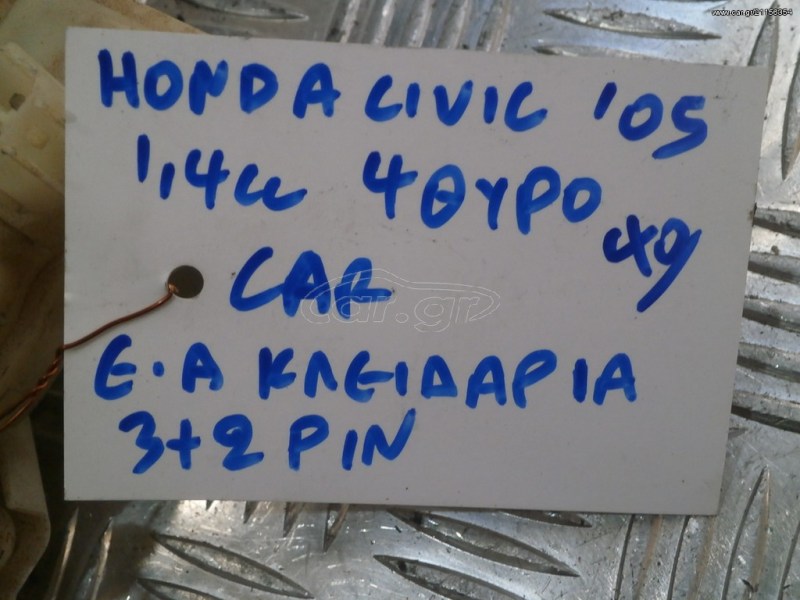 www.car.gr/21156354
HONDA CIVIC '05
1,4cc 4ΘΥΡΟ
CAR
car.gr
Ε.Α ΚΛΕΙΔΑΡΙΑ
3+2 PIN